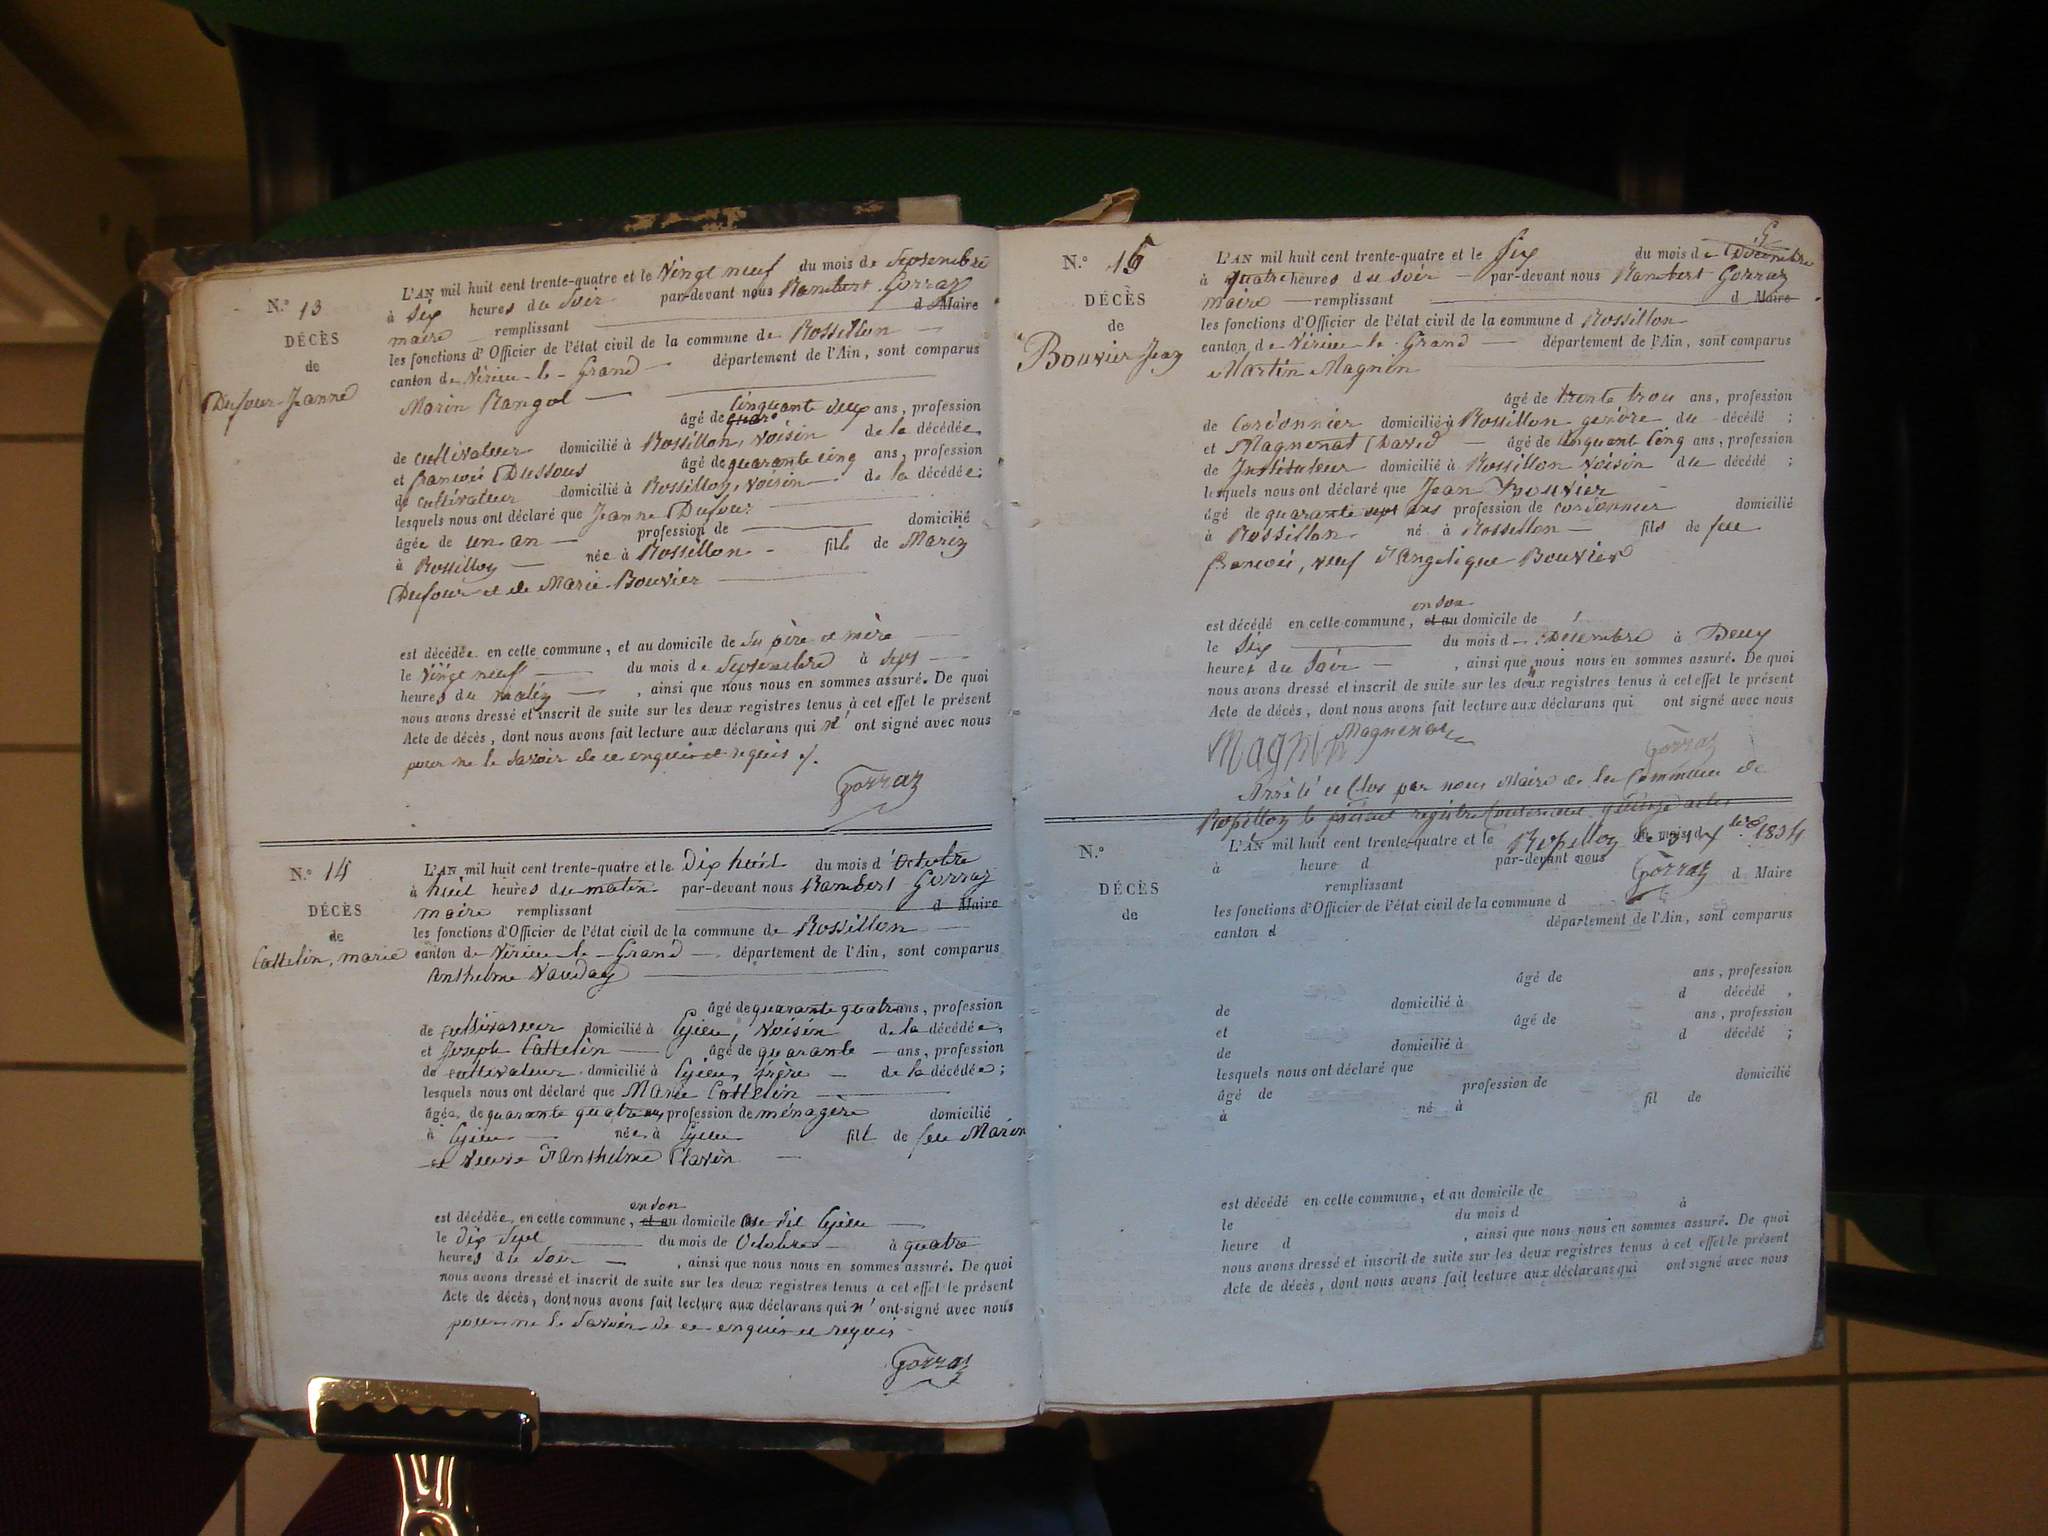 N.° 13
DÉCÈS
de
Dufour Jeanne
L'AN mil huit cent trente-quatre et le Vingt neuf du mois de Septembre
à Six heures du Soir par-devant nous Rambert Gorraz
maire remplissant d Maire
les fonctions d'Officier de l'état civil de la commune de Rossillon
canton de Virieu-le-Grand département de l'Ain, sont comparus
Marin
âgé de Cinquante deux ans, profession
de cultivateur domicilié à Rossillon, voisin de la décédée
et françois Dussous âgé de quarante cinq ans, profession
de cultivateur domicilié à Rossillon, voisin de la décédée;
lesquels nous ont déclaré que Jeanne Dufour
âgée de un an profession de domicilié
à Rossillon née à Rossillon fille de Marin
Dufour et de Marie Bouvier
est décédée en cette commune, et au domicile de Ses père et mère
le Vingt neuf du mois de Septembre à Sept
heures du matin, ainsi que nous nous en sommes assuré. De quoi
nous avons dressé et inscrit de suite sur les deux registres tenus à cet effet le présent
Acte de décès, dont nous avons fait lecture aux déclarans qui n' ont signé avec nous
pour ne le Savoir de ce enquis et requis ./.
Gorraz
N.° 14
DÉCÈS
de
Cattelin, marie
L'AN mil huit cent trente-quatre et le Dix huit du mois d'Octobre
à huit heures du matin par-devant nous Rambert Gorraz
maire remplissant d Maire
les fonctions d'Officier de l'état civil de la commune de Rossillon
canton de Virieu-le-Grand, département de l'Ain, sont comparus
Anthelme
âgé de quarante quatre ans, profession
de cultivateur domicilié à Cyieu, Voisin de la décédée,
et Joseph Cattelin âgé de quarante ans, profession
de cultivateur domicilié à Cyieu, frère de la décédée;
lesquels nous ont déclaré que Marie Cattelin
âgée de quarante quatre ans, profession de ménagère domicilié
à Cyieu née à Cyieu fille de feu Marin
et Veuve d'Anthelme
en son
est décédée en cette commune, et au domicile au dit Cyieu
le Dix Sept du mois de Octobre à quatre
heures du Soir, ainsi que nous nous en sommes assuré. De quoi
nous avons dressé et inscrit de suite sur les deux registres tenus à cet effet le présent
Acte de décès, dont nous avons fait lecture aux déclarans qui n' ont signé avec nous
pour ne le Savoir de ce enquis et requis
Gorraz
N.° 15
DÉCÈS
de
Bouvier Jean
L'AN mil huit cent trente-quatre et le Six du mois de Décembre
à quatre heures du Soir par-devant nous Rambert Gorraz
maire remplissant d Maire
les fonctions d'Officier de l'état civil de la commune d Rossillon
canton de Virieu-le-Grand département de l'Ain, sont comparus
Martin Magnin
âgé de trente trois ans, profession
de Cordonnier domicilié à Rossillon gendre du décédé;
et Magnenat David âgé de cinquant Cinq ans, profession
de Instituteur domicilié à Rossillon voisin du décédé;
lesquels nous ont déclaré que Jean Bouvier
âgé de quarante sept ans profession de cordonnier domicilié
à Rossillon né à Rossillon fils de feu
françois, veuf d'Angelique Bouvier
en son
est décédé en cette commune, et au domicile de
le Six du mois d Décembre à Deux
heures du Soir, ainsi que nous nous en sommes assuré. De quoi
nous avons dressé et inscrit de suite sur les deux registres tenus à cet effet le présent
Acte de décès, dont nous avons fait lecture aux déclarans qui ont signé avec nous
Magnin Magnenat Gorraz
Arrêté et Clos par nous Maire de la Commune de
Rossillon le présent registre Contenant quinze actes
Rossillon le 31 Xbre 1834
Gorraz
N.°
DÉCÈS
de
L'AN mil huit cent trente-quatre et le du mois d
à heure d par-devant nous
remplissant d Maire
les fonctions d'Officier de l'état civil de la commune d
canton d département de l'Ain, sont comparus
âgé de ans, profession
de domicilié à d décédé,
et âgé de ans, profession
de domicilié à d décédé;
lesquels nous ont déclaré que
âgé de profession de domicilié
à né à fil de
est décédé en cette commune, et au domicile de
le du mois d à
heure d, ainsi que nous nous en sommes assuré. De quoi
nous avons dressé et inscrit de suite sur les deux registres tenus à cet effet le présent
Acte de décès, dont nous avons fait lecture aux déclarans qui ont signé avec nous